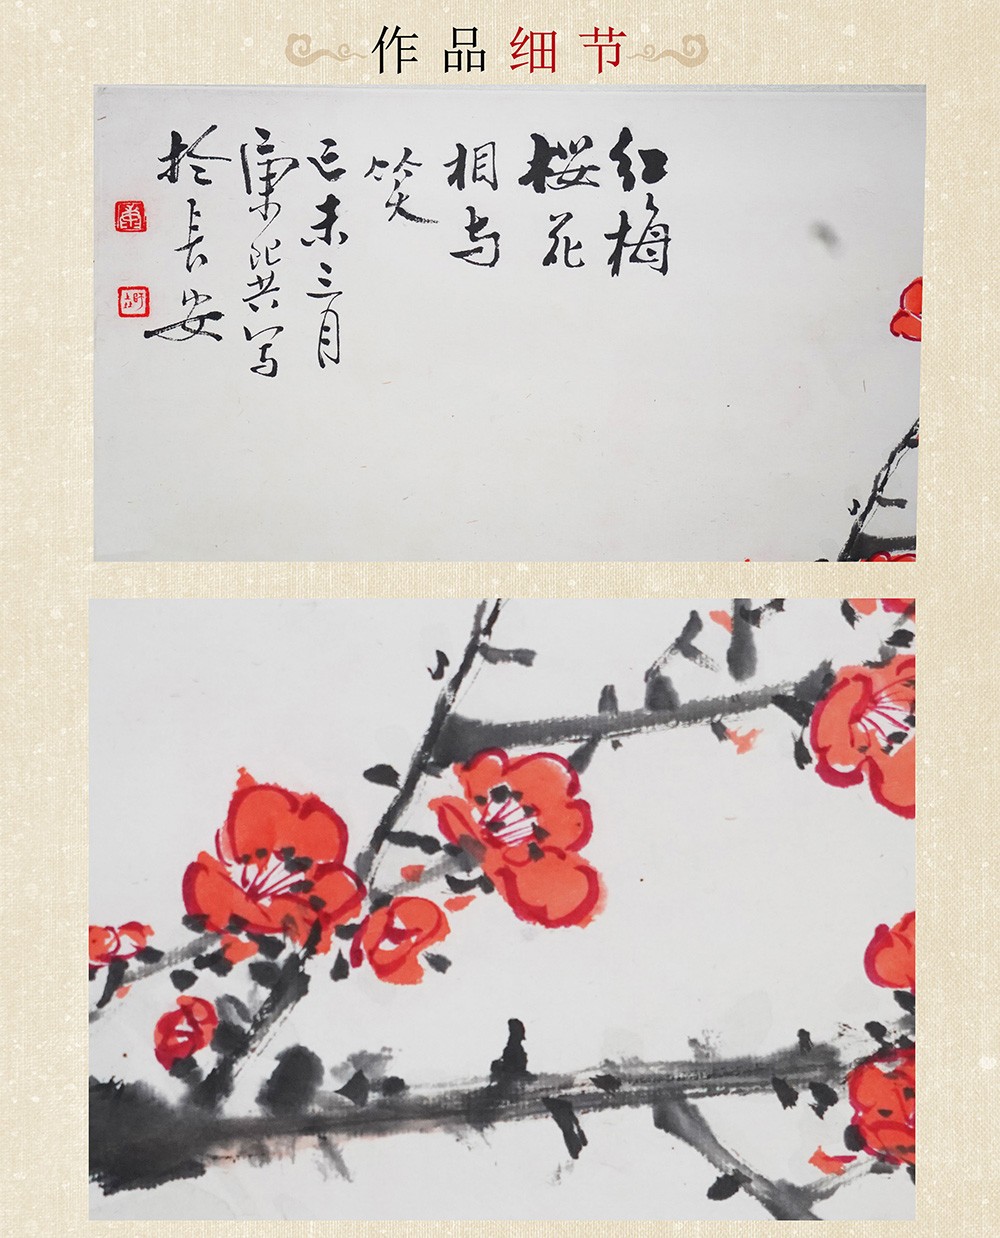 作品细节
红梅
樱花
相与
笑
己未三月
康师尧写
於长安
康